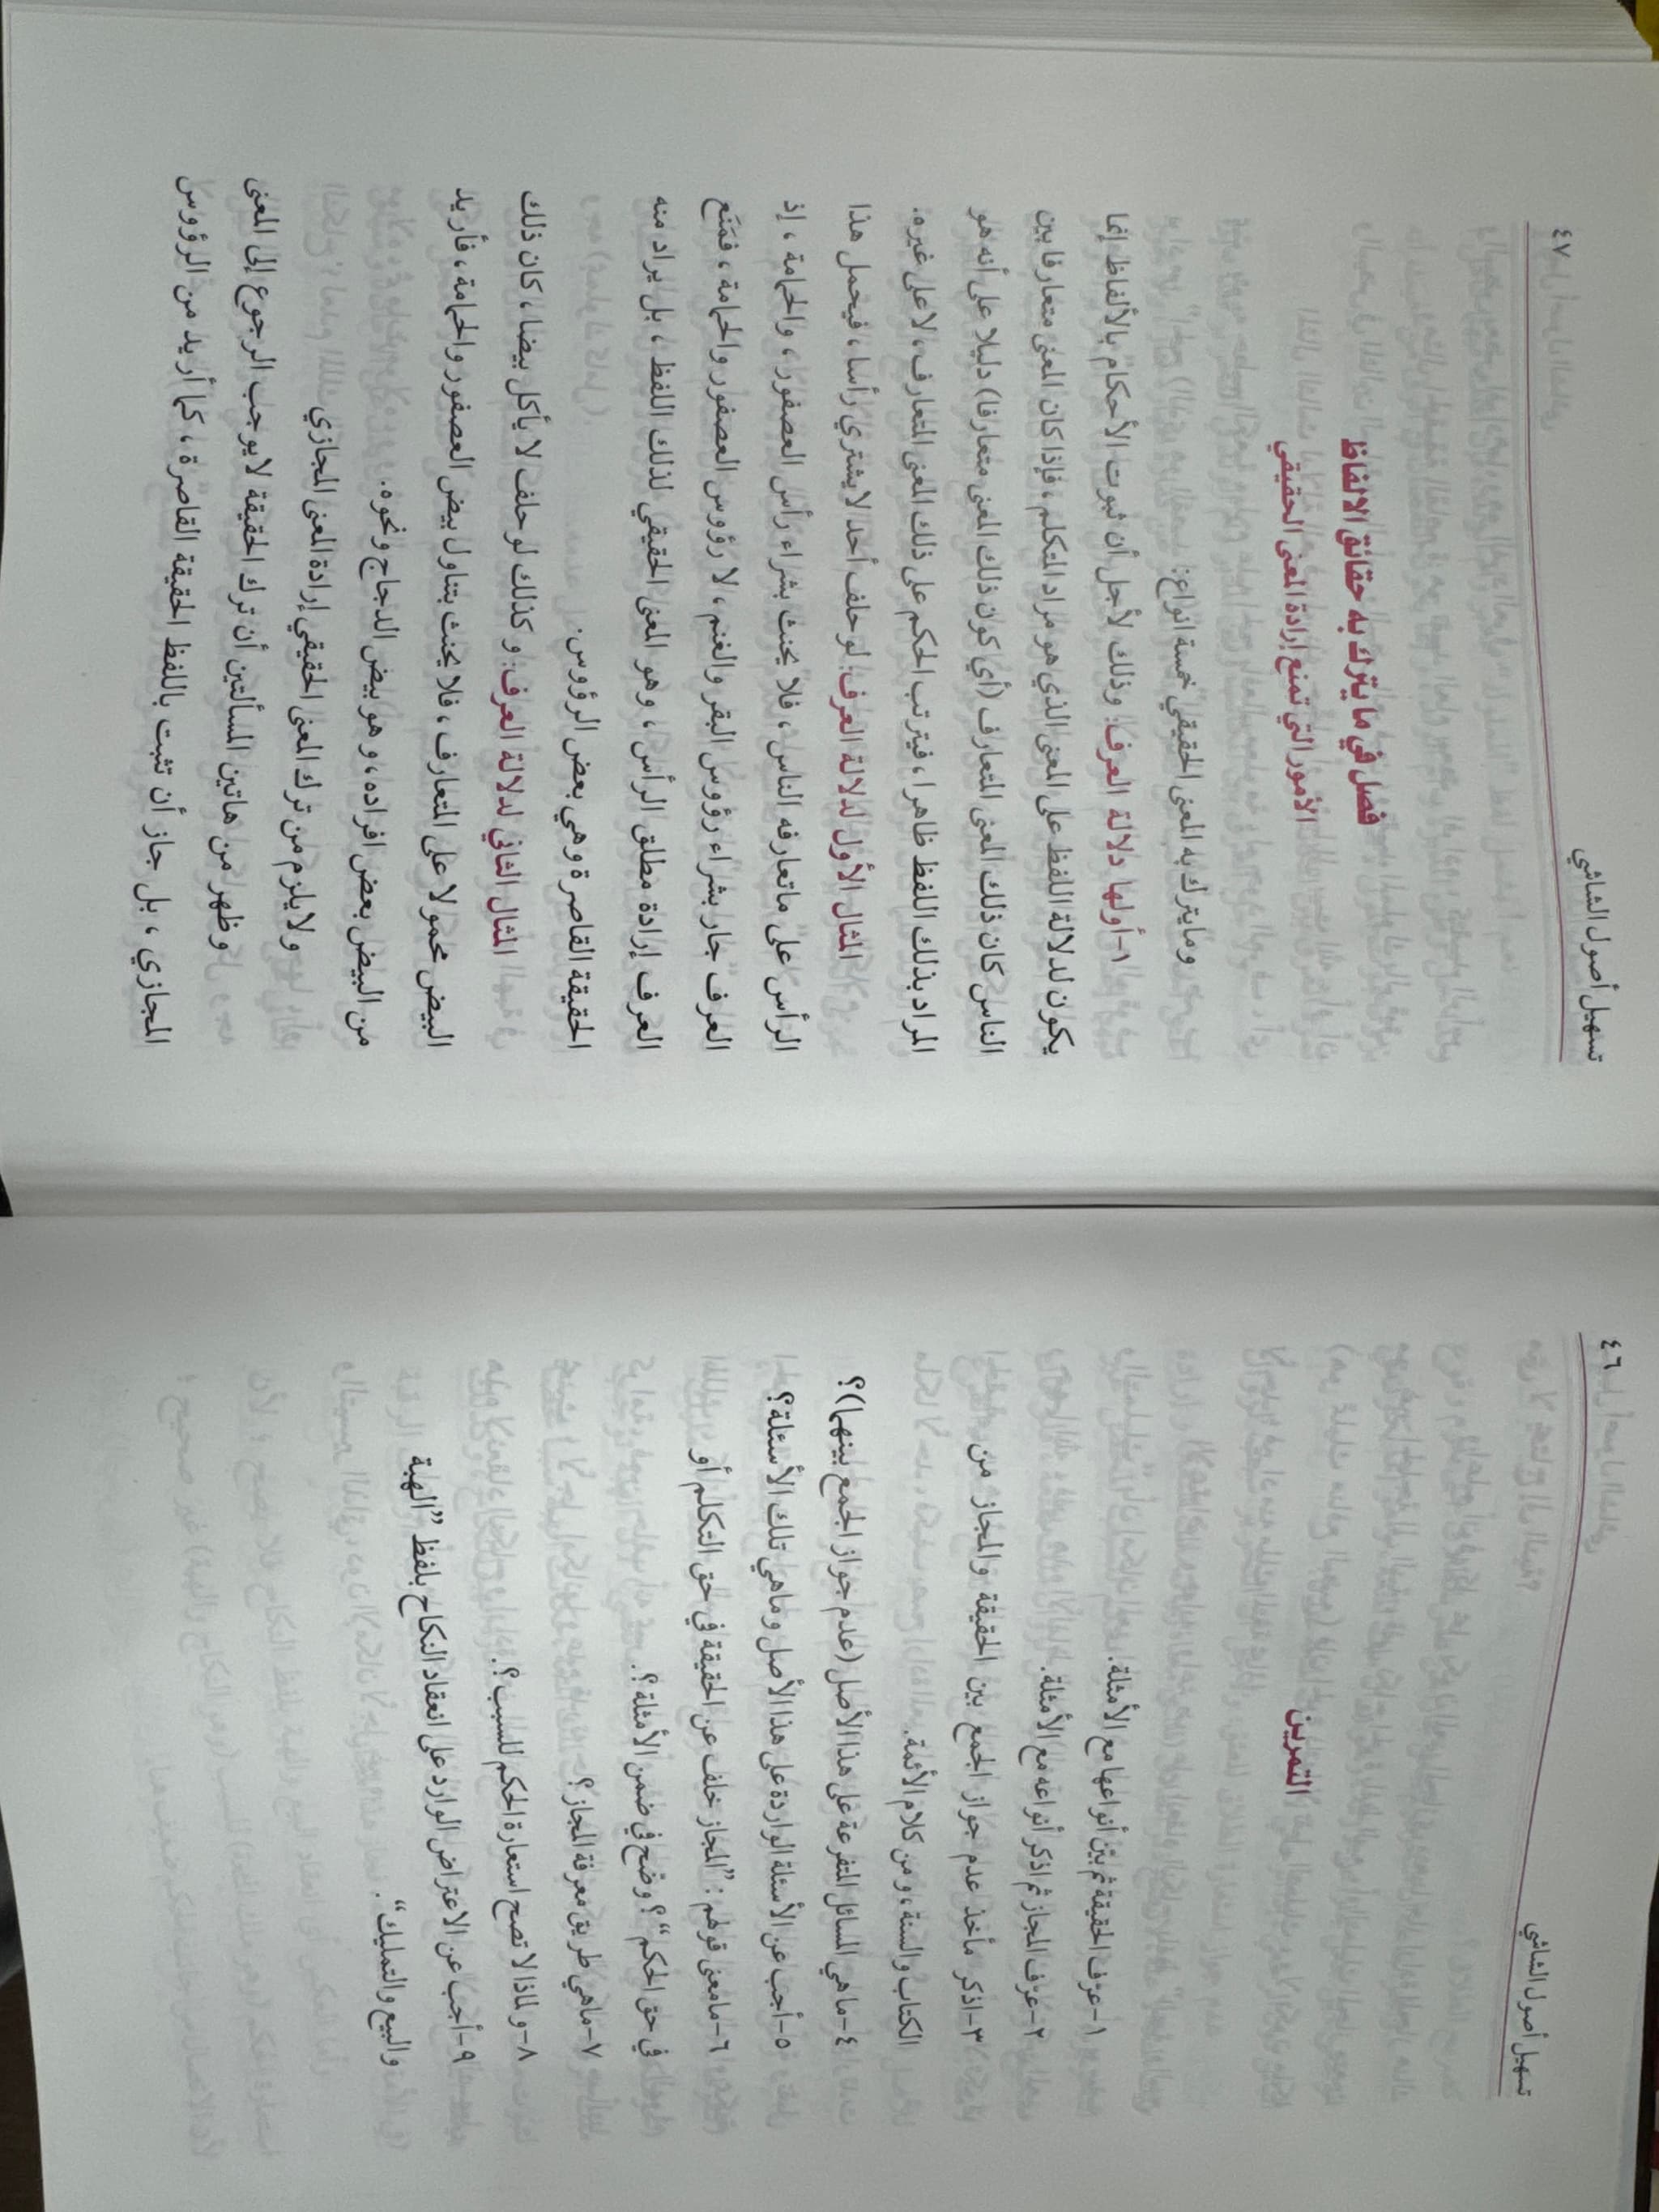 تسهيل أصول الشاشي
٤٦
التمرين
١-عرّف الحقيقة ثم بيّن أنواعها مع الأمثلة.
٢-عرّف المجاز ثم اذكر أنواعه مع الأمثلة.
٣-اذكر مأخذ عدم جواز الجمع بين الحقيقة والمجاز من
الكتاب والسنة، ومن كلام الأئمة.
٤-ما هي المسائل المتفرعة على هذا الأصل (عدم جواز الجمع بينهما)؟
٥-أجب عن الأسئلة الواردة على هذا الأصل وما هي تلك الأسئلة؟
٦-ما معنى قولهم: "المجاز خلف عن الحقيقة في حق التكلم أو
في حق الحكم"؟ وضح في ضمن الأمثلة؟.
٧-ما هي طريق معرفة المجاز؟
٨-ولماذا لا تصح استعارة الحكم للسبب؟.
٩-أجب عن الاعتراض الوارد على انعقاد النكاح بلفظ "الهبة
والبيع والتمليك".
تسهيل أصول الشاشي
٤٧
فصل في ما يترك به حقائق الالفاظ
الأمور التي تمنع إرادة المعنى الحقيقي
وما يترك به المعنى الحقيقي خمسة انواع:
١-أولها دلالة العرف: وذلك لأجل أن ثبوت الأحكام بالألفاظ إنما
يكون لدلالة اللفظ على المعنى الذي هو مراد المتكلم، فإذا كان المعنى متعارفا بين
الناس كان ذلك المعنى المتعارف (أي كون ذلك المعنى متعارفا) دليلا على أنه هو
المراد بذلك اللفظ ظاهرا، فيترتب الحكم على ذلك المعنى المتعارف، لا على غيره.
المثال الأول لدلالة العرف: لو حلف أحد لا يشتري رأسا، فيحمل هذا
الرأس على ما تعارفه الناس، فلا يحنث بشراء رأس العصفور، والحمامة، إذ
العرف جار بشراء رؤوس البقر والغنم، لا رؤوس العصفور والحمامة، فمَنَع
العرف إرادة مطلق الرأس، وهو المعنى الحقيقي لذلك اللفظ، بل يراد منه
الحقيقة القاصرة وهي بعض الرؤوس.
المثال الثاني لدلالة العرف: وكذلك لو حلف لا يأكل بيضا، كان ذلك
البيض محمولا على المتعارف، فلا يحنث بتناول بيض العصفور والحمامة، فأريد
من البيض بعض افراده، وهو بيض الدجاج ونحوه.
ولا يلزم من ترك المعنى الحقيقي إرادة المعنى المجازي
وظهر من هاتين المسألتين أن ترك الحقيقة لا يوجب الرجوع إلى المعنى
المجازي، بل جاز أن تثبت باللفظ الحقيقة القاصرة، كما أريد من الرؤوس